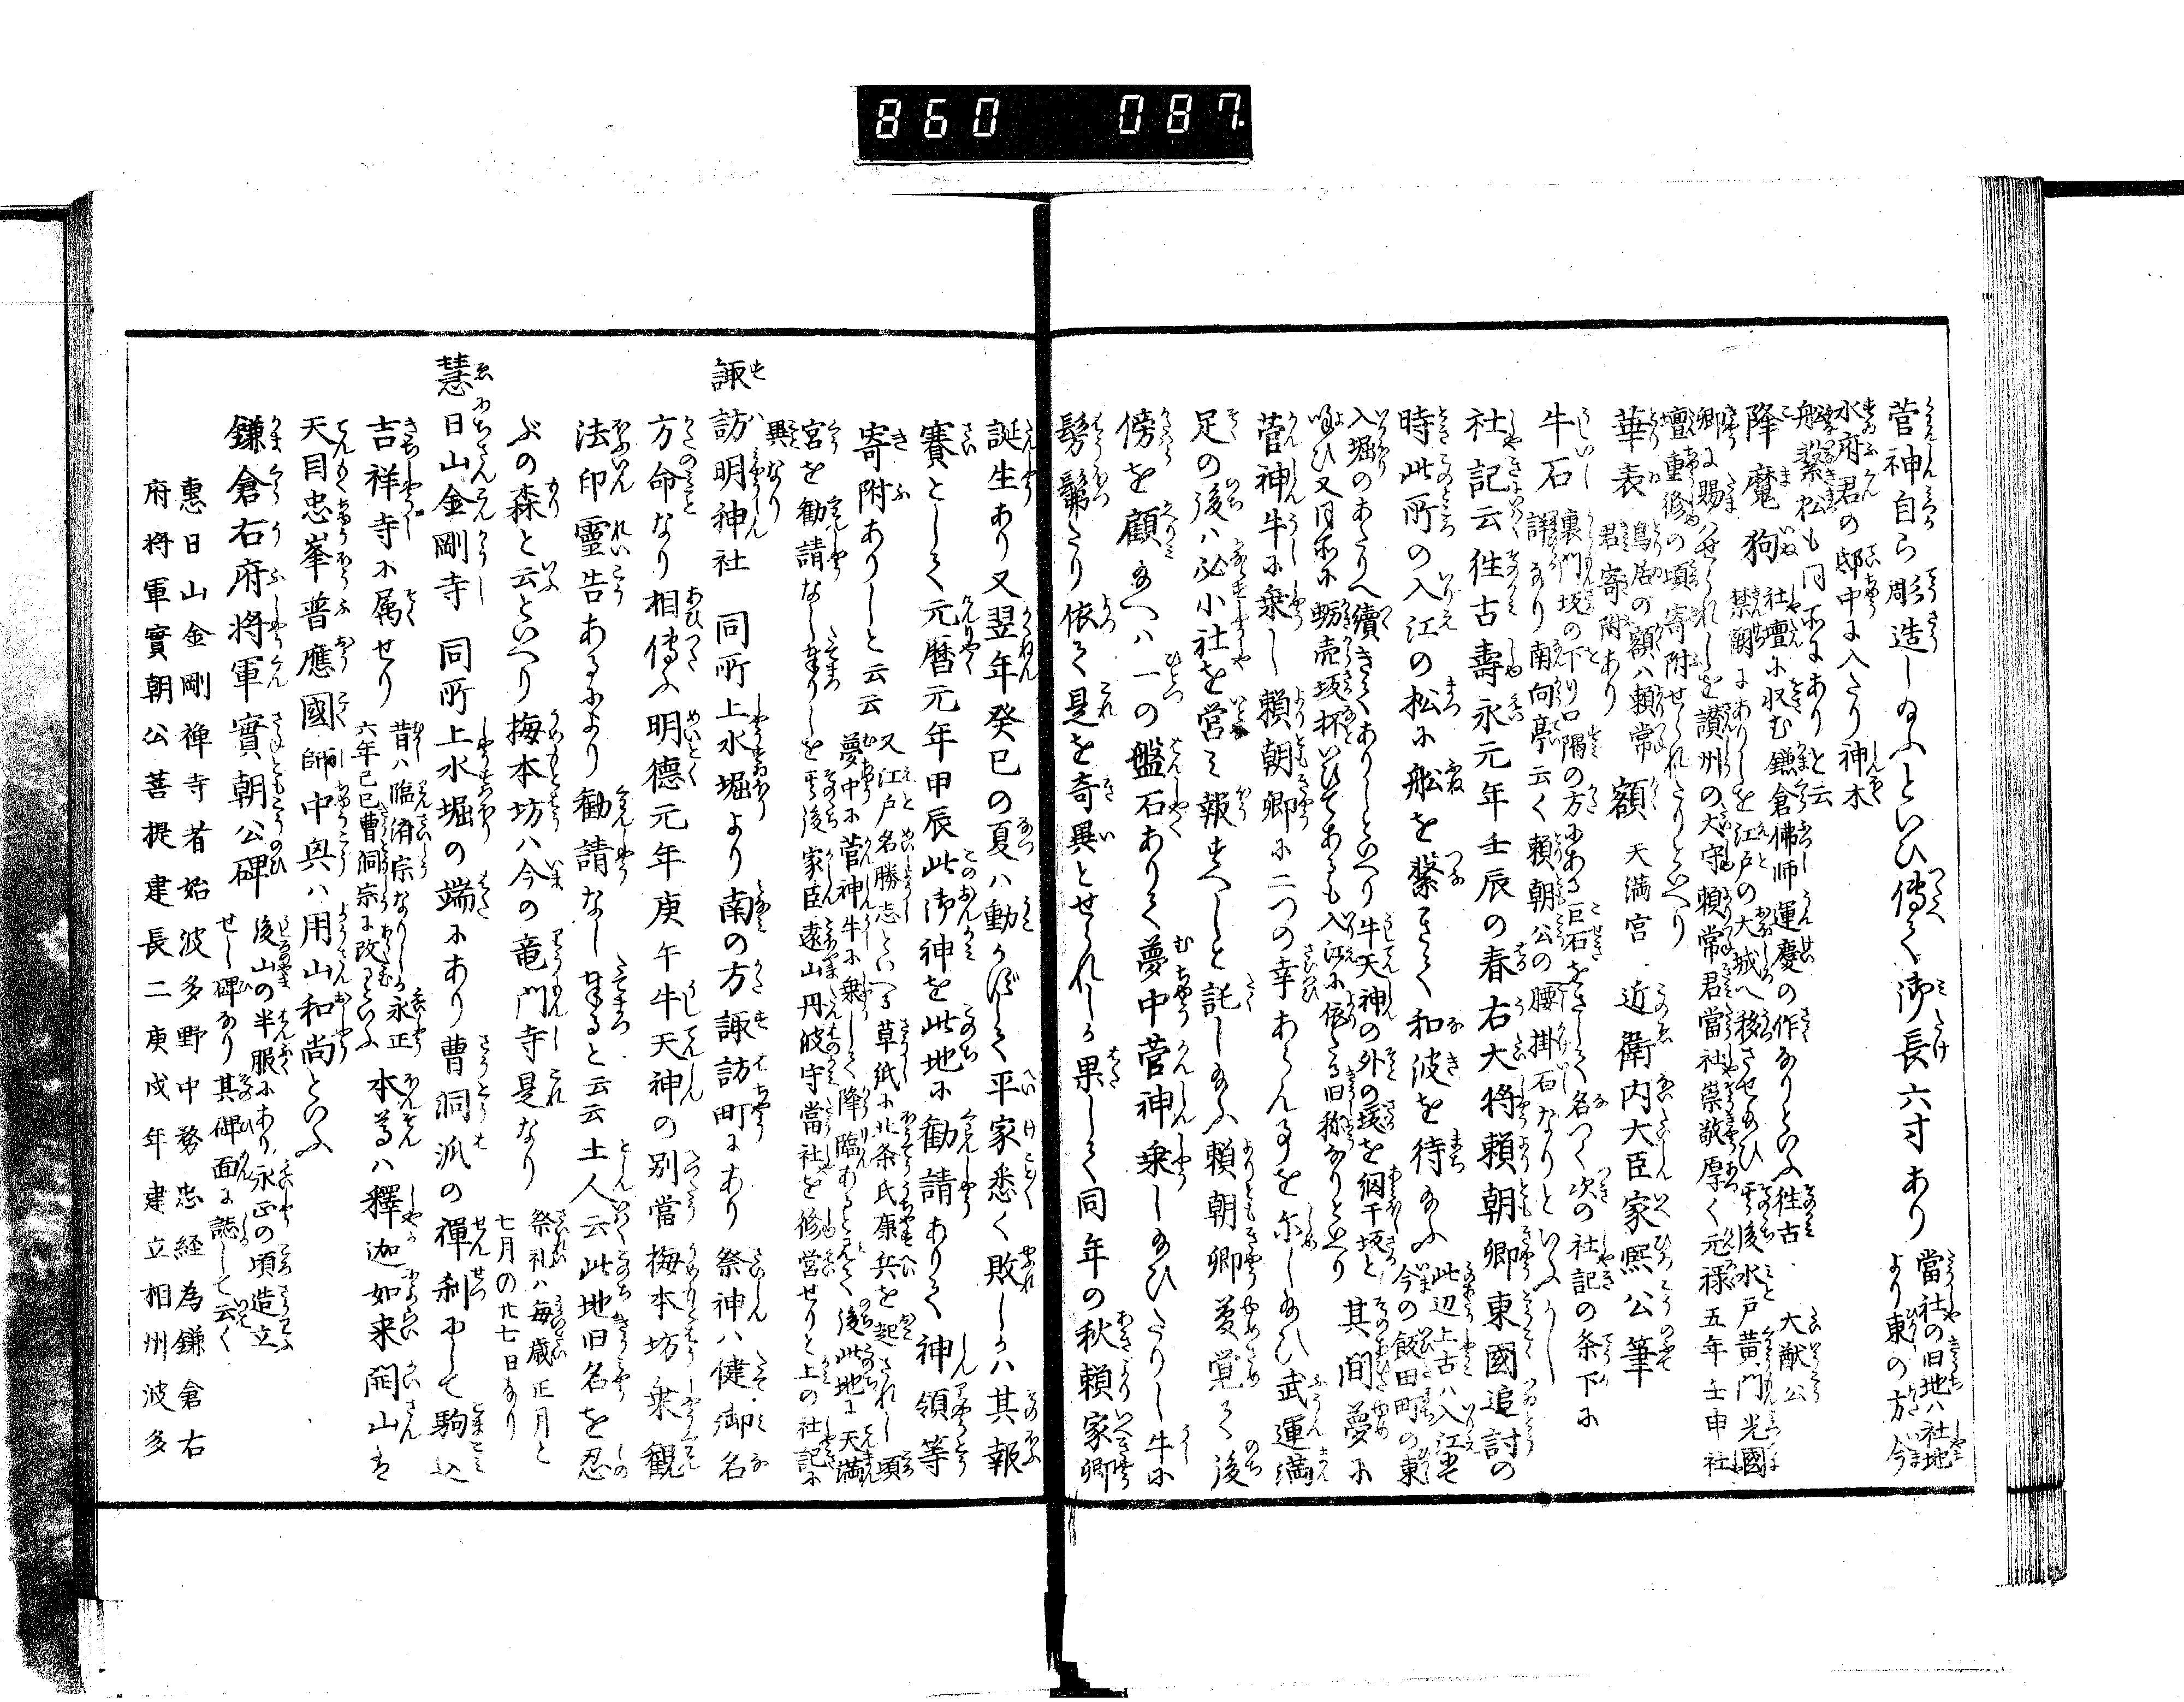 860 087.
菅神自ら彫造し給ふといひ傳て御長六寸あり 當社の旧地ハ社地より東の方今
水府君の邸中に入たり神木
船繋松も同所にありと云
降魔狗 社壇に収む鎌倉佛師運慶の作なりといふ往古 大猷公
禁闕にありしを江戸の大城へ移させ給ひ其後水戸黄門光國
卿に賜ハせられしを讃州の大守頼常君當社崇敬厚く元禄五年壬申社
壇重修の頃寄附せられたりといへり
華表 鳥居の額ハ頼常君寄附あり 額 天満宮 近衛内大臣家熈公筆
牛石 裏門坂の下り口隅の方にある巨石をさして名つく次の社記の条下に
詳なり南向亭云く頼朝公の腰掛石なりといふ
社記云往古壽永元年壬辰の春右大将頼朝卿東國追討の
時此所の入江の松に船を繋きて和波を待給ふ 此辺上古ハ入江也今の飯田町の東
入堀のあたりへ續きてありしといへり牛天神の外の坂を網干坂と
唱ひ又同所に蛎売坂杯いひてあるも入江に依たる旧称なりといへり 其間夢に
菅神牛に乗し頼朝卿に二つの幸あらん事を示し給ひ武運満
足の後ハ必小社を営ミ報すへしと託し給ふ頼朝卿夢覚て後
傍を顧給へハ一の盤石ありて夢中菅神乗し給ひたりし牛に
髣髴たり依て是を奇異とせられしか果して同年の秋頼家卿
誕生あり又翌年癸巳の夏ハ動かずして平家悉く敗しかハ其報
賽として元暦元年甲辰此御神を此地に勧請ありて神領等
寄附ありしと云云 又江戸名勝志といへる草紙に北条氏康兵を起されし頃
夢中に菅神牛に乗して降臨あるとみて後此地に天満
宮を勧請なし奉りしを其後家臣遠山丹波守當社を修営せりと上の社記に
異なり
諏訪明神社 同所上水堀より南の方諏訪町にあり祭神ハ健御名
方命なり相傳ふ明德元年庚午牛天神の別當梅本坊乗観
法印靈告あるにより勧請なし奉ると云云土人云此地旧名を忍
ぶの森と云といへり梅本坊ハ今の竜門寺是なり 祭礼ハ毎歳正月と七月の廿七日なり
慧日山金剛寺 同所上水堀の端にあり曹洞派の禅刹にして駒込
吉祥寺に属せり 昔ハ臨濟宗なりしか永正六年己巳曹洞宗に改むといふ 本尊ハ釋迦如来開山は
天目忠峯普應國師中興ハ用山和尚といふ
鎌倉右府将軍實朝公碑 後山の半腹にあり永正の頃造立せし碑なり其碑面に誌して云く
惠日山金剛禅寺者始波多野中務忠経為鎌倉右
府将軍實朝公菩提建長二庚戌年建立相州波多